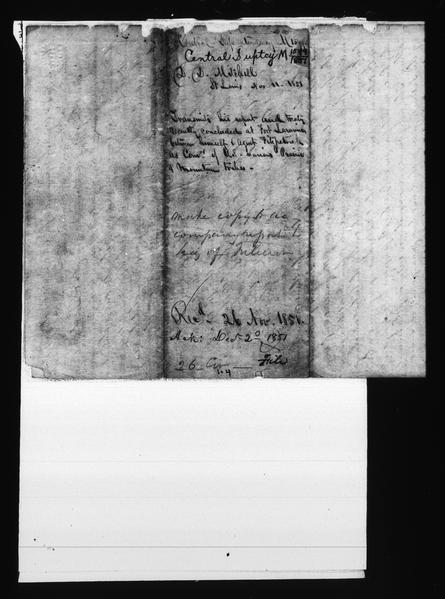 Central Suptcy M
D. D. Mitchell
St Louis Nov. 11. 1851
Transmits his report and treaty
recently concluded at Fort Laramie
between himself & agent Fitzpatrick
as Comrs of U.S. & various Prairie
& Mountain tribes -
make copy to ac
company report to
Sec of Interior
Recd 26 Nov. 1851.
Ack: Dec 2d 1851
File
26